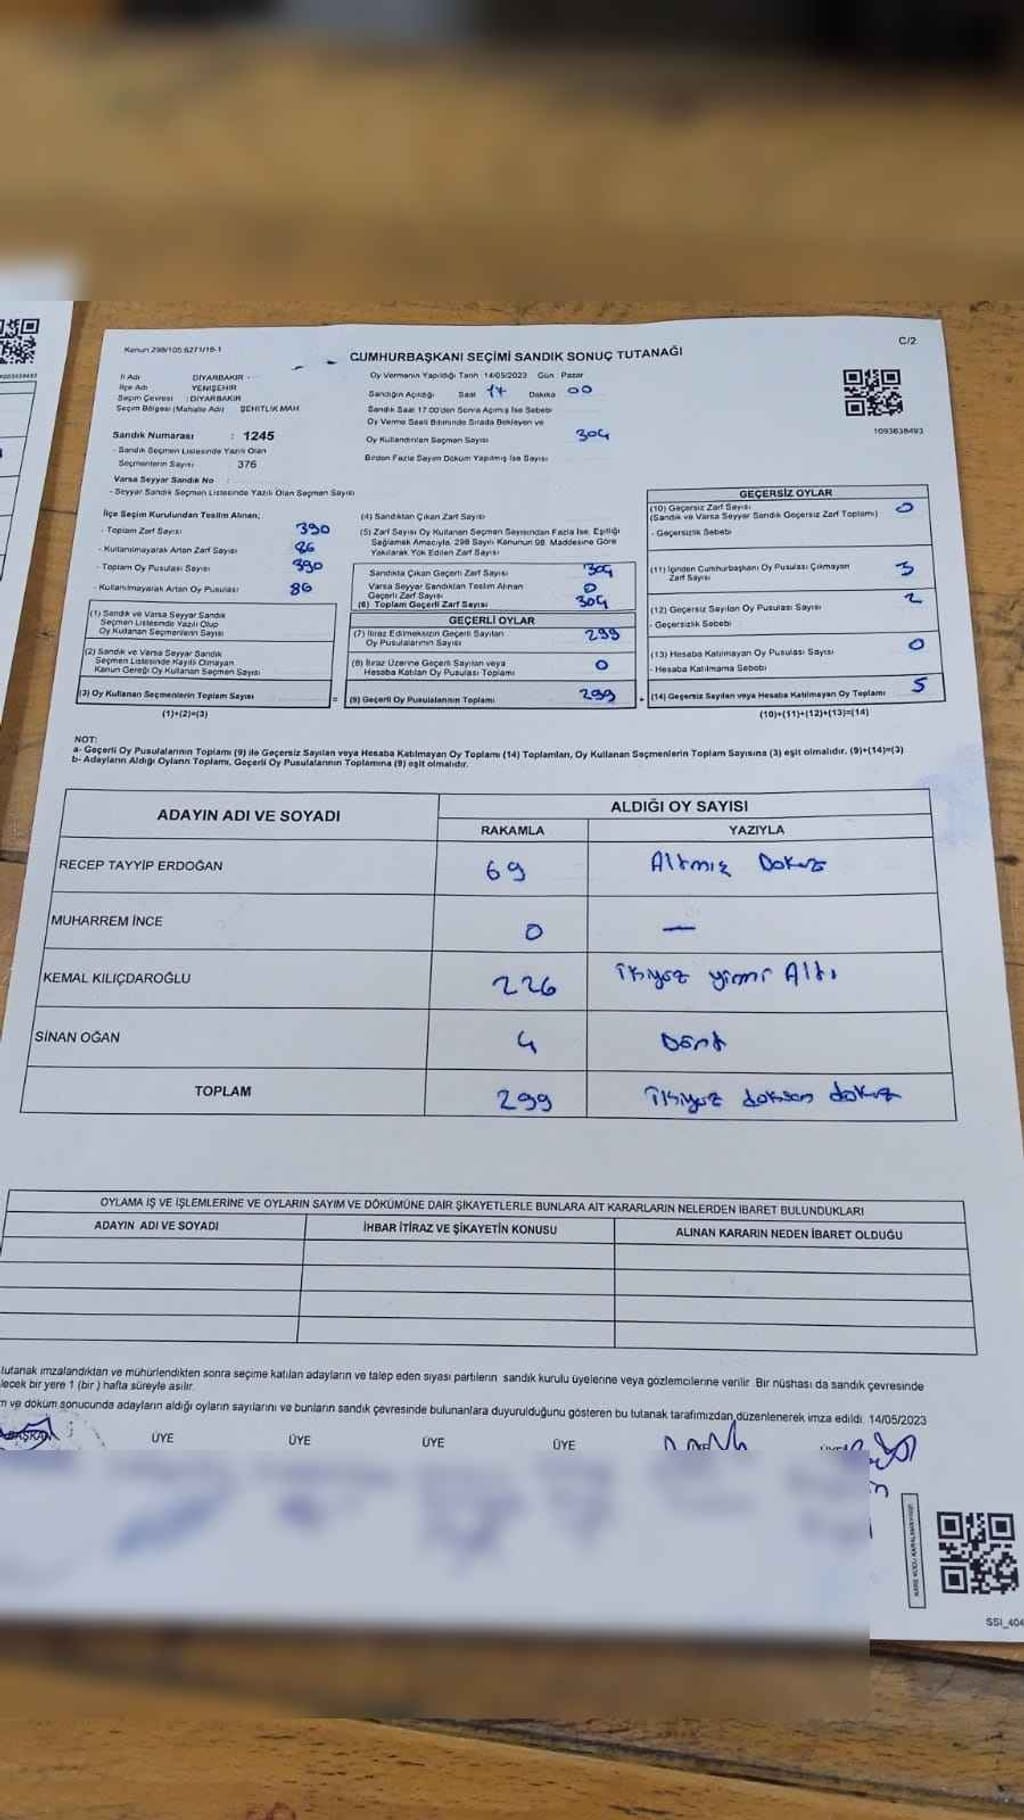 Kanun 298/105 6271/18-1
C/2
CUMHURBAŞKANI SEÇİMİ SANDIK SONUÇ TUTANAĞI
İl Adı DİYARBAKIR
İlçe Adı YENİŞEHİR
Seçim Çevresi : DİYARBAKIR
Seçim Bölgesi (Mahalle Adı) ŞEHİTLİK MAH.
Sandık Numarası : 1245
- Sandık Seçmen Listesinde Yazılı Olan
Seçmenlerin Sayısı 376
Varsa Seyyar Sandık No :
- Seyyar Sandık Seçmen Listesinde Yazılı Olan Seçmen Sayısı
Oy Vermenin Yapıldığı Tarih 14/05/2023 Gün : Pazar
Sandığın Açıldığı Saat 17 Dakika 00
Sandık Saat 17.00'den Sonra Açılmış İse Sebebi
Oy Verme Saati Bitiminde Sırada Bekleyen ve
Oy Kullandırılan Seçmen Sayısı 304
Birden Fazla Sayım Döküm Yapılmış İse Sayısı
1093638493
İlçe Seçim Kurulundan Teslim Alınan;
- Toplam Zarf Sayısı 390
- Kullanılmayarak Artan Zarf Sayısı 86
- Toplam Oy Pusulası Sayısı 390
- Kullanılmayarak Artan Oy Pusulası 86
(1) Sandık ve Varsa Seyyar Sandık
Seçmen Listesinde Yazılı Olup
Oy Kullanan Seçmenlerin Sayısı
(2) Sandık ve Varsa Seyyar Sandık
Seçmen Listesinde Kayıtlı Olmayan
Kanun Gereği Oy Kullanan Seçmen Sayısı
(3) Oy Kullanan Seçmenlerin Toplam Sayısı
(1)+(2)=(3)
(4) Sandıktan Çıkan Zarf Sayısı
(5) Zarf Sayısı Oy Kullanan Seçmen Sayısından Fazla İse, Eşitliği
Sağlamak Amacıyla, 298 Sayılı Kanunun 98. Maddesine Göre
Yakılarak Yok Edilen Zarf Sayısı
Sandıkta Çıkan Geçerli Zarf Sayısı 304
Varsa Seyyar Sandıktan Teslim Alınan
Geçerli Zarf Sayısı 0
(6) Toplam Geçerli Zarf Sayısı 304
GEÇERLİ OYLAR
(7) İtiraz Edilmeksizin Geçerli Sayılan
Oy Pusulalarının Sayısı 299
(8) İtiraz Üzerine Geçerli Sayılan veya
Hesaba Katılan Oy Pusulası Toplamı 0
= (9) Geçerli Oy Pusulalarının Toplamı 299
GEÇERSİZ OYLAR
(10) Geçersiz Zarf Sayısı 0
(Sandık ve Varsa Seyyar Sandık Geçersiz Zarf Toplamı)
- Geçersizlik Sebebi
(11) İçinden Cumhurbaşkanı Oy Pusulası Çıkmayan
Zarf Sayısı 3
(12) Geçersiz Sayılan Oy Pusulası Sayısı 2
- Geçersizlik Sebebi
(13) Hesaba Katılmayan Oy Pusulası Sayısı 0
- Hesaba Katılmama Sebebi
+ (14) Geçersiz Sayılan veya Hesaba Katılmayan Oy Toplamı 5
(10)+(11)+(12)+(13)=(14)
NOT:
a- Geçerli Oy Pusulalarının Toplamı (9) ile Geçersiz Sayılan veya Hesaba Katılmayan Oy Toplamı (14) Toplamları, Oy Kullanan Seçmenlerin Toplam Sayısına (3) eşit olmalıdır. (9)+(14)=(3)
b- Adayların Aldığı Oyların Toplamı, Geçerli Oy Pusulalarının Toplamına (9) eşit olmalıdır.
ADAYIN ADI VE SOYADI
ALDIĞI OY SAYISI
RAKAMLA YAZIYLA
RECEP TAYYİP ERDOĞAN 69 Altmış Dokuz
MUHARREM İNCE 0 —
KEMAL KILIÇDAROĞLU 226 ikiyüz yirmi Altı
SİNAN OĞAN 4 Dört
TOPLAM 299 ikiyüz doksan dokuz
OYLAMA İŞ VE İŞLEMLERİNE VE OYLARIN SAYIM VE DÖKÜMÜNE DAİR ŞİKAYETLERLE BUNLARA AİT KARARLARIN NELERDEN İBARET BULUNDUKLARI
ADAYIN ADI VE SOYADI
İHBAR İTİRAZ VE ŞİKAYETİN KONUSU
ALINAN KARARIN NEDEN İBARET OLDUĞU
tutanak imzalandıktan ve mühürlendikten sonra seçime katılan adayların ve talep eden siyasi partilerin sandık kurulu üyelerine veya gözlemcilerine verilir. Bir nüshası da sandık çevresinde
lecek bir yere 1 (bir) hafta süreyle asılır.
m ve döküm sonucunda adayların aldığı oyların sayılarını ve bunların sandık çevresinde bulunanlara duyurulduğunu gösteren bu tutanak tarafımızdan düzenlenerek imza edildi. 14/05/2023
BAŞKAN ÜYE ÜYE ÜYE ÜYE
SSI_404